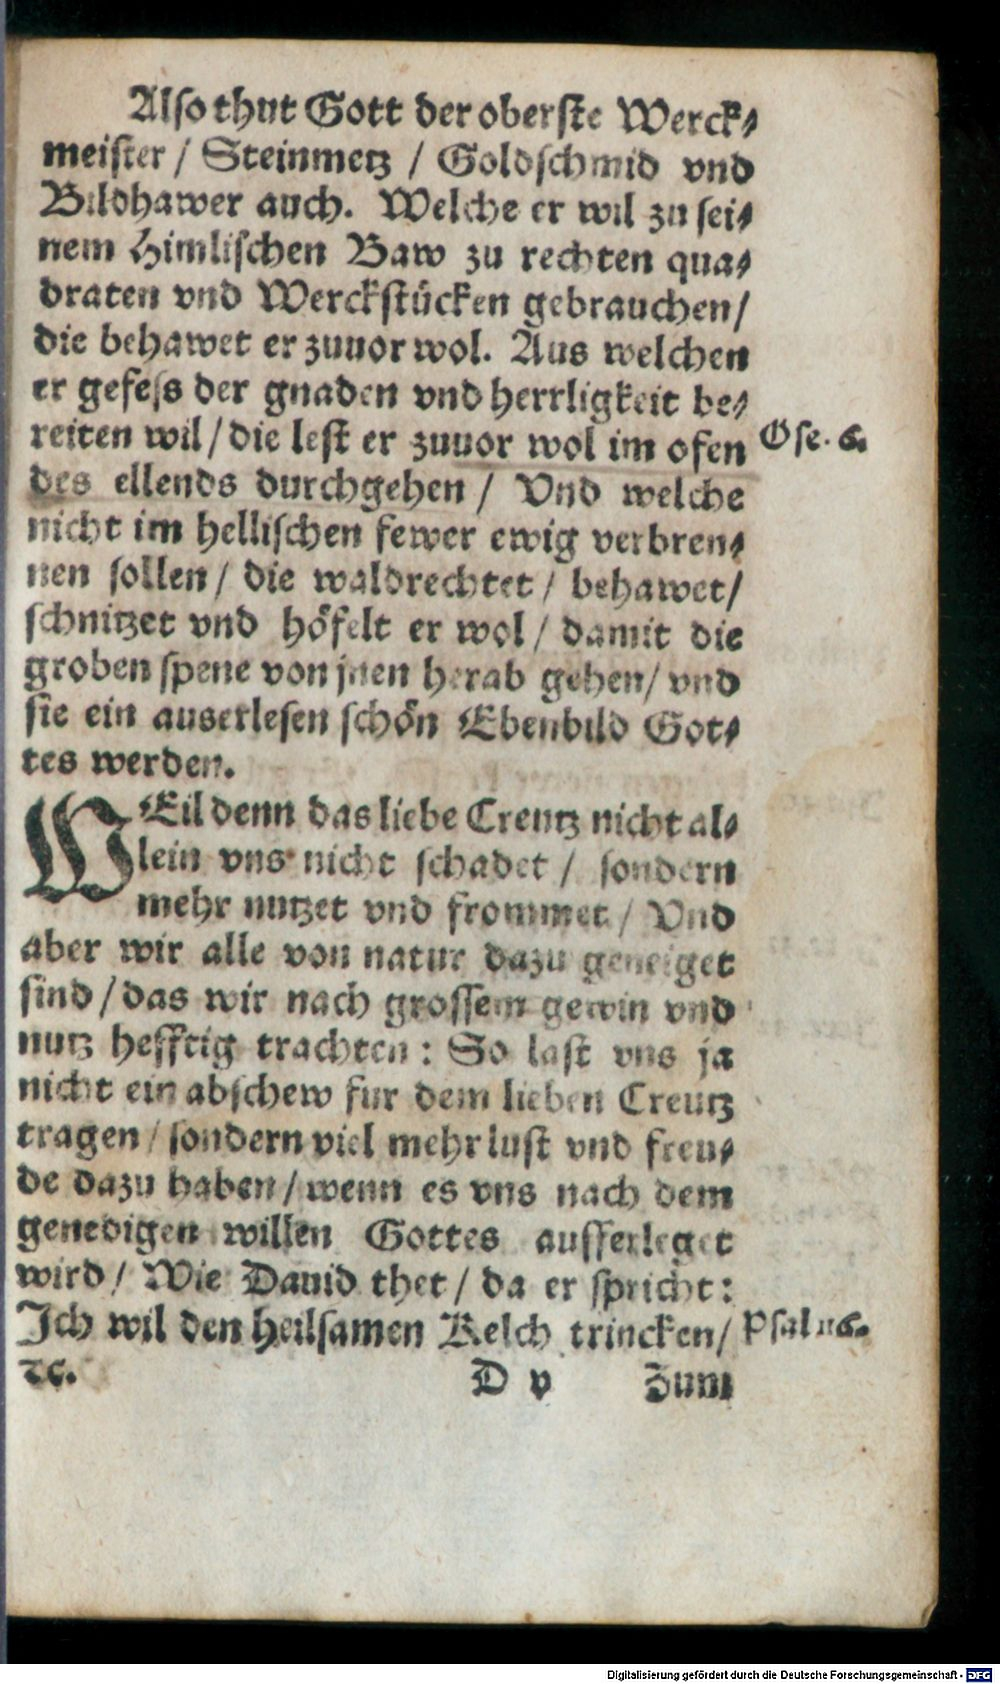 Also thut Gott der oberste Werck⸗
meister / Steinmetz / Goldschmid vnd
Bildhawer auch. Welche er wil zu sei⸗
nem Himlischen Baw zu rechten qua⸗
draten vnd Werckstücken gebrauchen /
die behawet er zuuor wol. Aus welchen
er gefess der gnaden vnd herrligkeit be⸗
reiten wil / die lest er zuuor wol im ofen
Ose. 6.
des ellends durchgehen / Vnd welche
nicht im hellischen fewer ewig verbren⸗
nen sollen / die waldrechtet / behawet /
schnitzet vnd höfelt er wol / damit die
groben spene von jnen herab gehen / vnd
sie ein auserlesen schön Ebenbild Got⸗
tes werden.
WEil denn das liebe Creutz nicht al⸗
lein vns nicht schadet / sondern
mehr nutzet vnd frommet / Vnd
aber wir alle von natur dazu geneiget
sind / das wir nach grossem gewin vnd
nutz hefftig trachten : So last vns ja
nicht ein abschew fur dem lieben Creutz
tragen / sondern viel mehr lust vnd freu⸗
de dazu haben / wenn es vns nach dem
genedigen willen Gottes aufferleget
wird / Wie Dauid thet / da er spricht :
Ich wil den heilsamen Kelch trincken /
Psal 116.
ꝛc.
D v
Zum
Digitalisierung gefördert durch die Deutsche Forschungsgemeinschaft - DFG